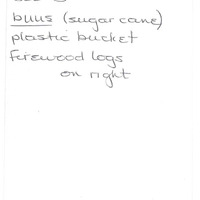 buus (sugar cane)
plastic bucket
firewood logs
on right